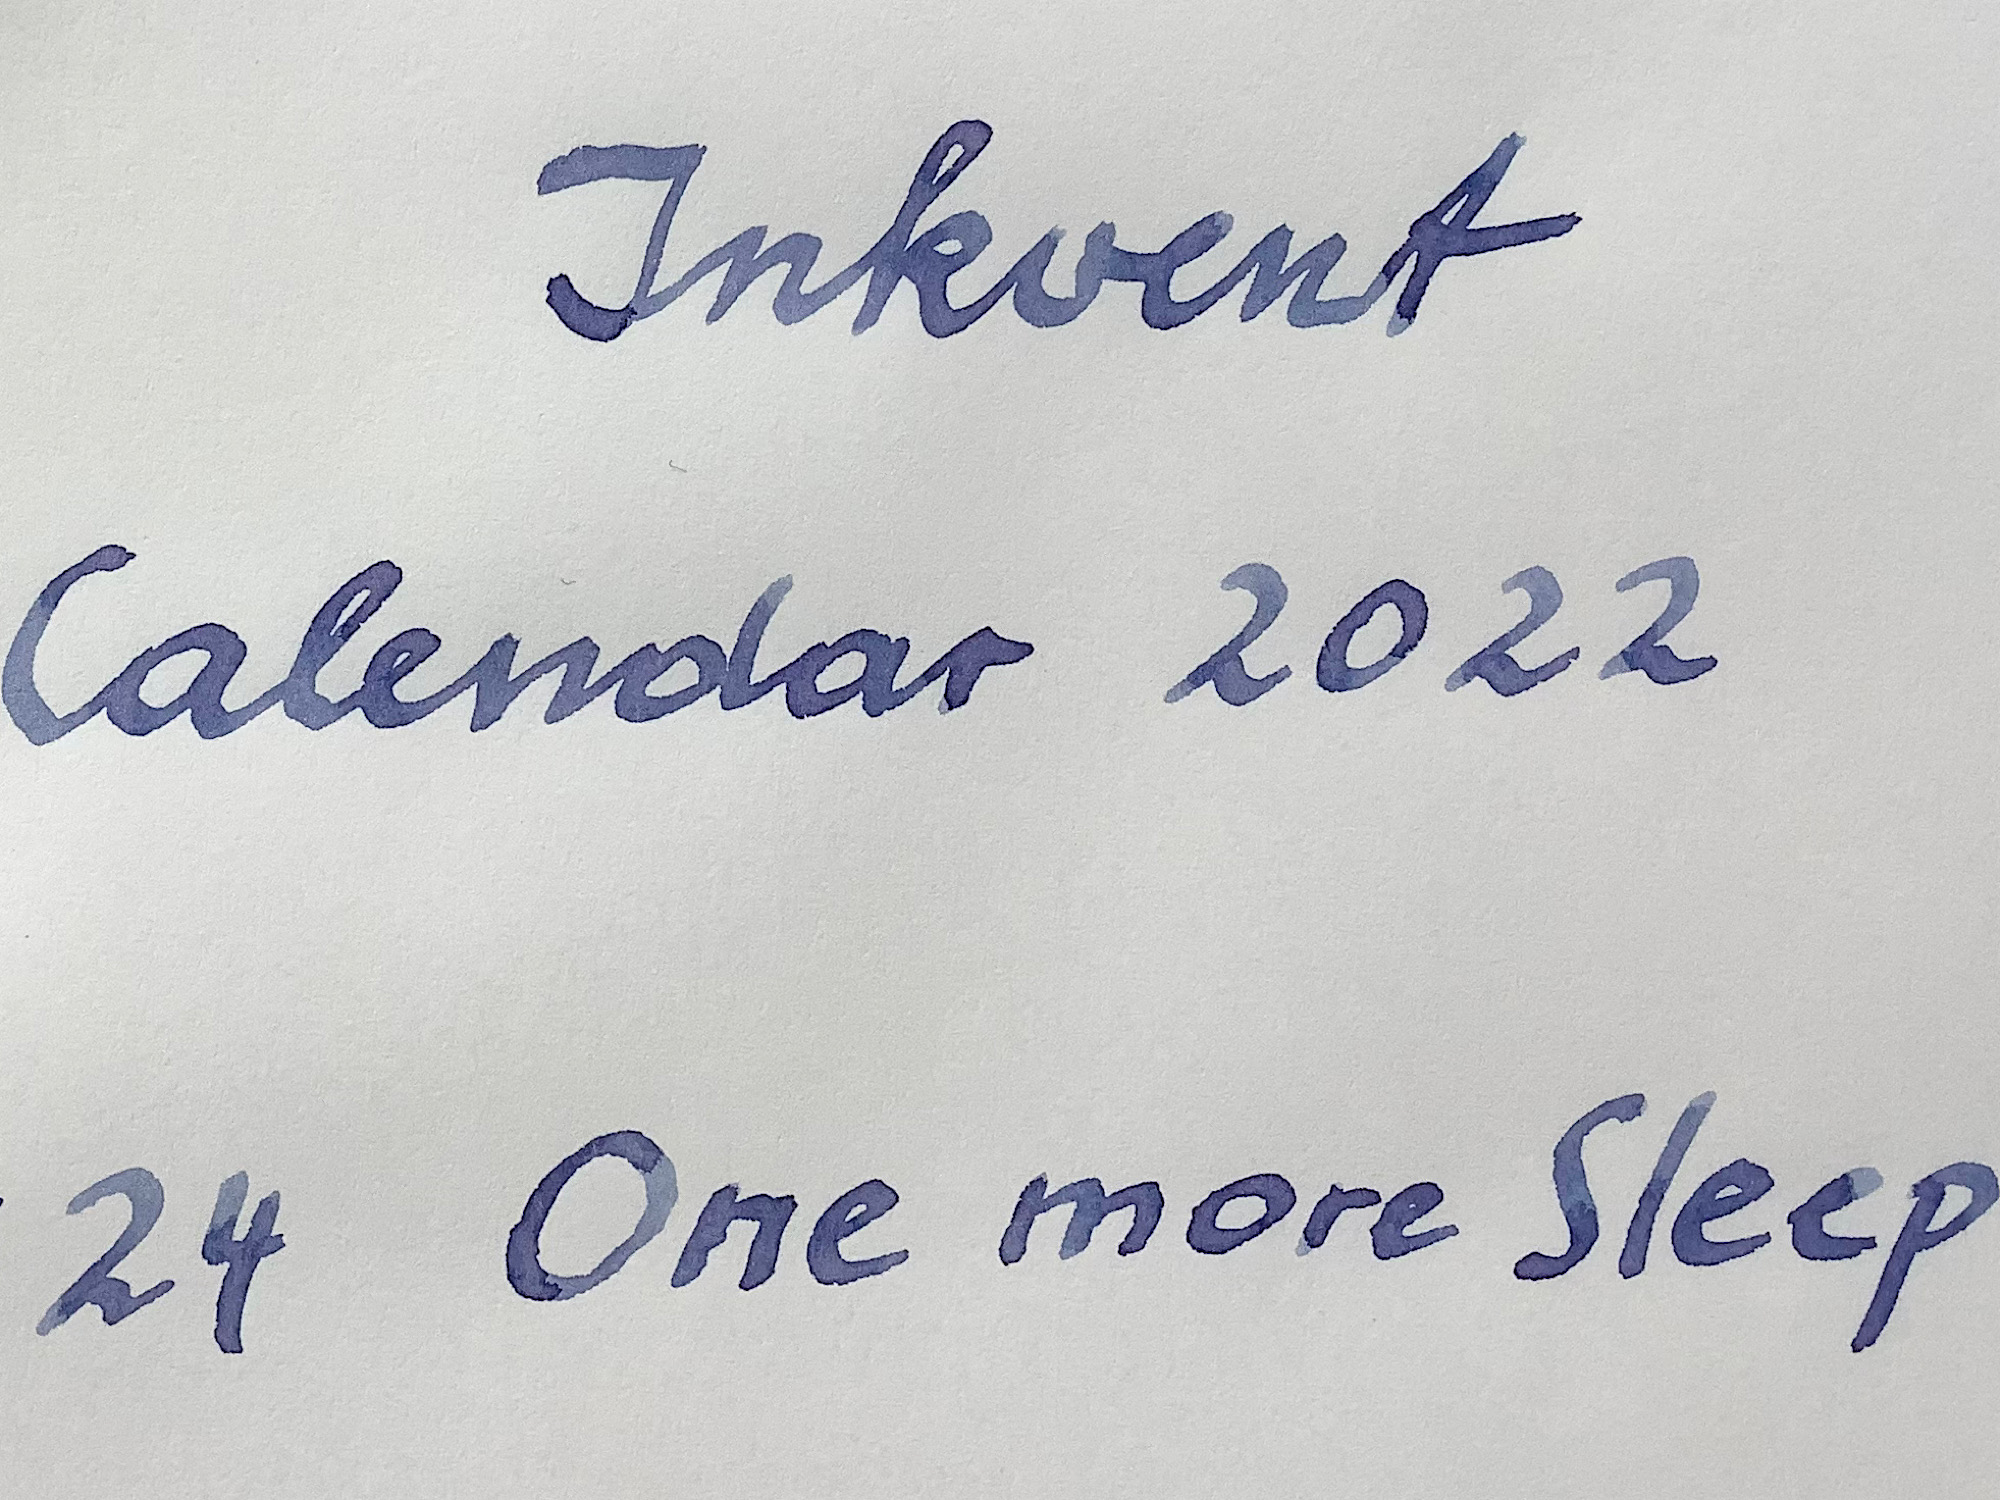 Inkvent
Calendar 2022
24 One more Sleep